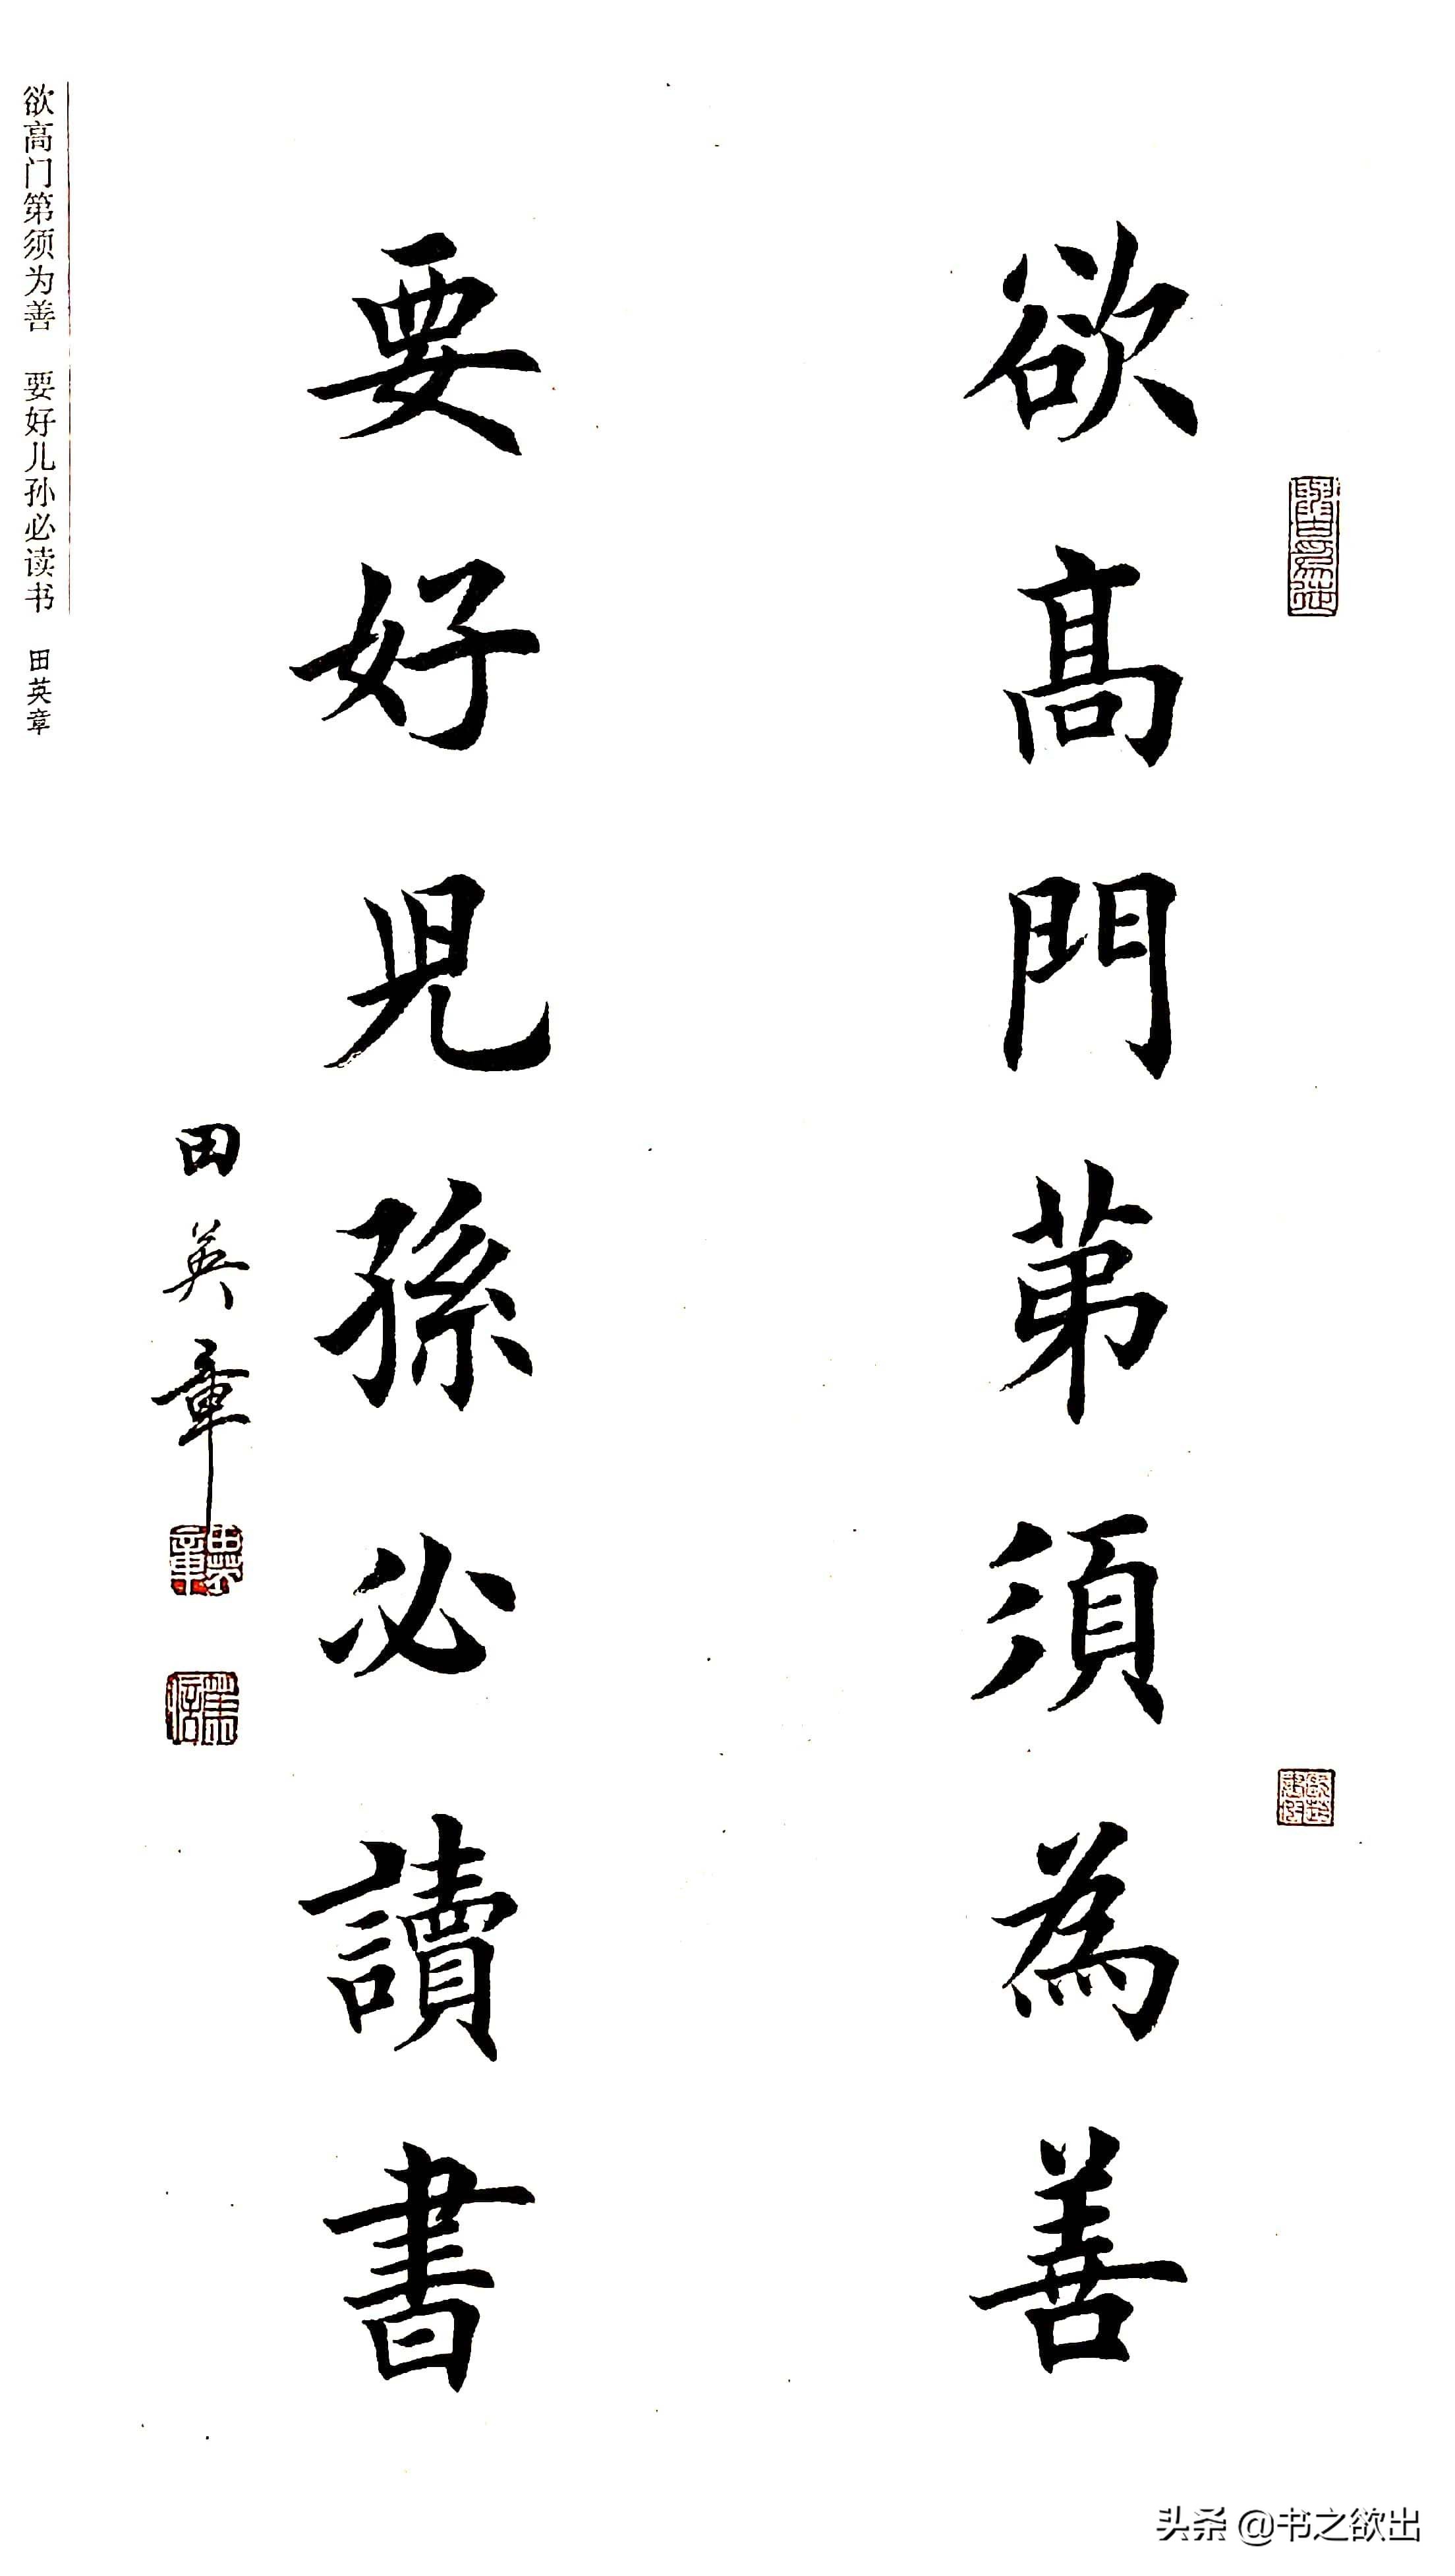 欲高門苐須為善
要好児孫必讀書
田英章
欲高门第须为善 要好儿孙必读书 田英章
头条 @书之欲出